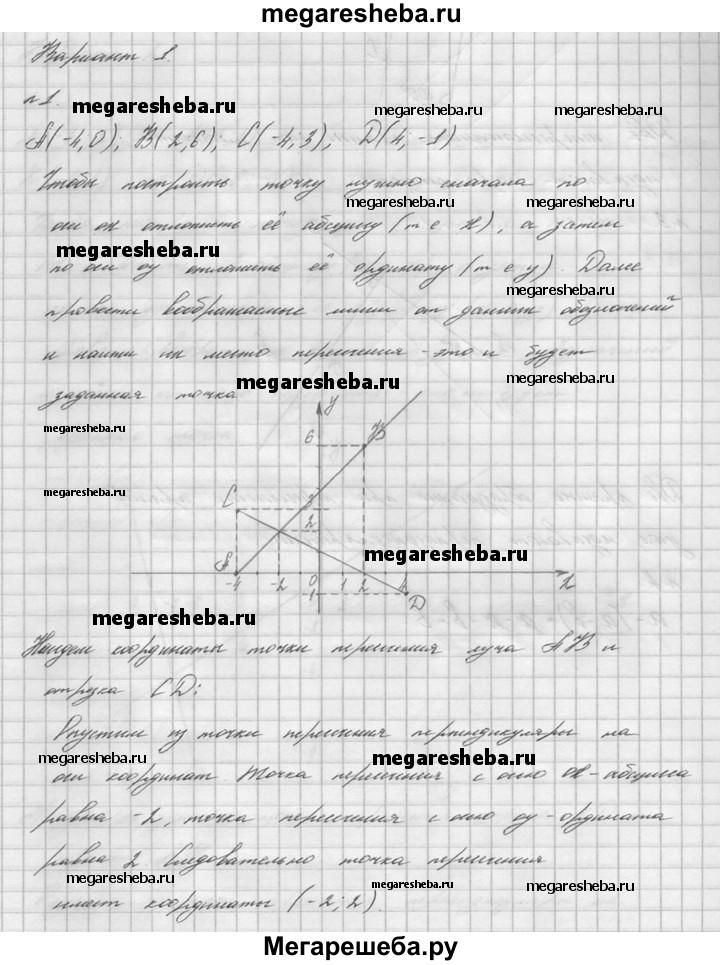 megaresheba.ru
Вариант 1.
n1.
megaresheba.ru
megaresheba.ru
megaresheba.ru
A(-4,0); B(2,6); C(-4;3), D(4;-1)
Чтобы построить точку нужно сначала по
megaresheba.ru
megaresheba.ru
оси ох отложить её абсциссу (т е х), а затем
megaresheba.ru
по оси оу отложить её ординату (т е у). Далее
megaresheba.ru
провести воображаемые линии от данных обозначений
и найти их место пересечения - это и будет
megaresheba.ru
megaresheba.ru
заданная точка
megaresheba.ru
y
6
B
megaresheba.ru
C
3
2
megaresheba.ru
A
-4 -2 0 1 2 4 x
-1
D
megaresheba.ru
Найдем координаты точки пересечения луча AB и
отрезка CD:
Опустим из точки пересечения перпендикуляры на
megaresheba.ru
megaresheba.ru
оси координат. Точка пересечения с осью ох - абсцисса
равна -2, точка пересечения с осью оу - ордината
равна 2. Следовательно точка пересечения
megaresheba.ru
megaresheba.ru
megaresheba.ru
имеет координаты (-2;2).
Мегарешеба.ру